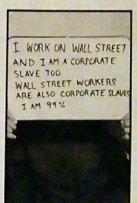 I WORK ON WALL STREET
AND I AM A CORPORATE
SLAVE TOO.
WALL STREET WORKERS
ARE ALSO CORPORATE SLAVES
I AM 99%